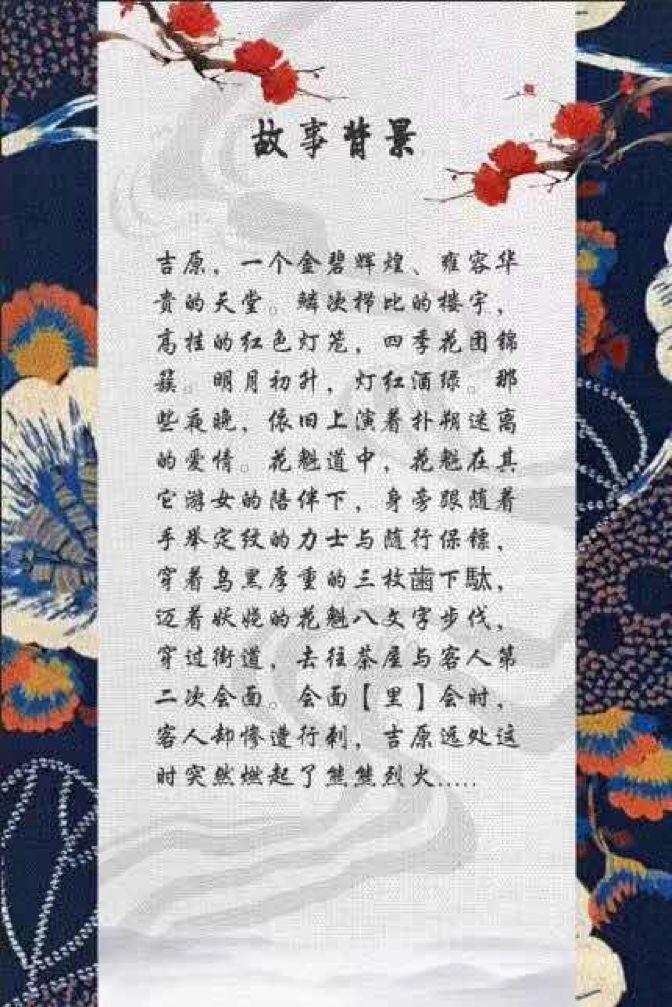 故事背景
吉原，一个金碧辉煌、雍容华
贵的天堂。鳞次栉比的楼宇，
高挂的红色灯笼，四季花团锦
簇。明月初升，灯红酒绿。那
些夜晚，依旧上演着扑朔迷离
的爱情。花魁道中，花魁在其
它游女的陪伴下，身旁跟随着
手举定纹的力士与随行保镖，
穿着乌黑厚重的三枚歯下駄，
迈着妖娆的花魁八文字步伐，
穿过街道，去往茶屋与客人第
二次会面。会面【里】会时，
客人却惨遭行刺，吉原远处这
时突然燃起了熊熊烈火.....